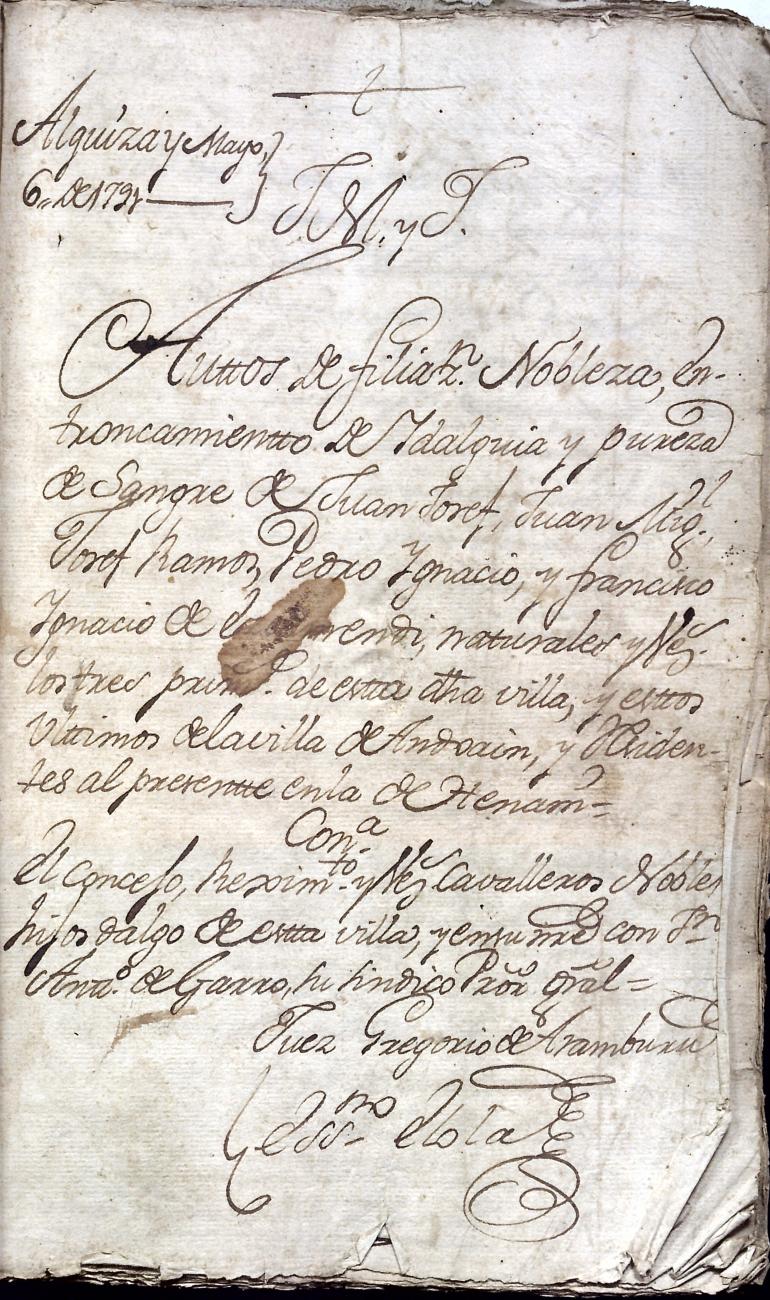 Alquiza y Mayo,
6,, de 179
J. M. y J.
Auttos de filiazn. Nobleza, en-
troncamientto de Ydalguia y pureza
de Sangre de Juan Josef, Juan Migl,
Josef Ramon, Pedro Ygnacio, y francisco
Ygnacio de rendi, naturales y Vezs.
los tres prims. de estta dha villa, y esttos
Ulttimos de la villa de Andoain, y Residen-
tes al presentte en la de Hernani =
Con.a
El Concejo, Reximto. y Vezs Cavalleros Nobles
hijos dalgo de estta villa, y en su nre con Jn
Antto. de Garro, su sindico Pror. gral =
Juez Gregorio de Aramburu
Essno Elola